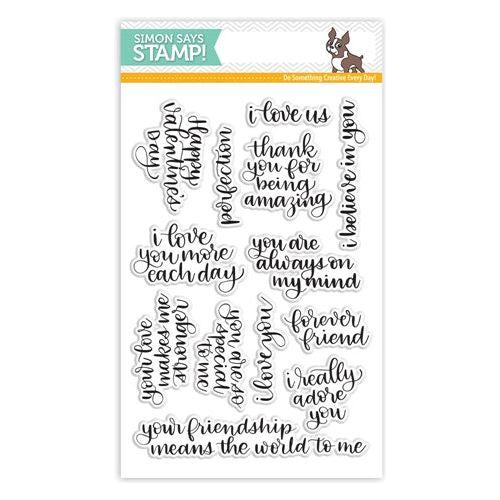 SIMON SAYS
STAMP!
Do Something Creative Every Day!
happy
valentine's
day
perfection
i love us
thank
you for
being
amazing
i believe in you
i love
you more
each day
you are
always on
my mind
your love
makes me
stronger
you are so
special
to me
i love you
forever
friend
i really
adore
you
your friendship
means the world to me